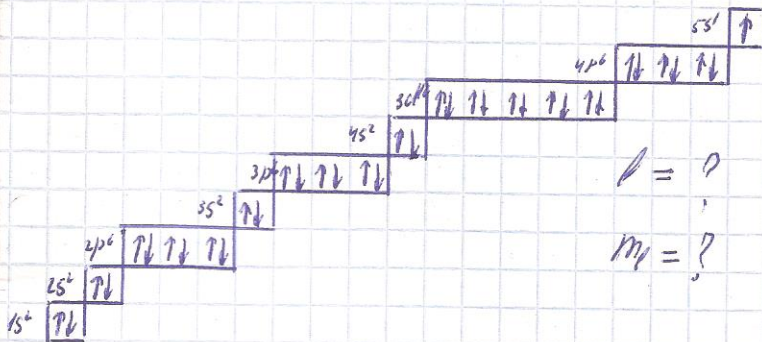 5s¹ ↑
4p⁶ ↑↓ ↑↓ ↑↓
3d¹⁰ ↑↓ ↑↓ ↑↓ ↑↓ ↑↓
4s² ↑↓
3p⁶ ↑↓ ↑↓ ↑↓
l = ?
3s² ↑↓
2p⁶ ↑↓ ↑↓ ↑↓
mₗ = ?
2s² ↑↓
1s² ↑↓